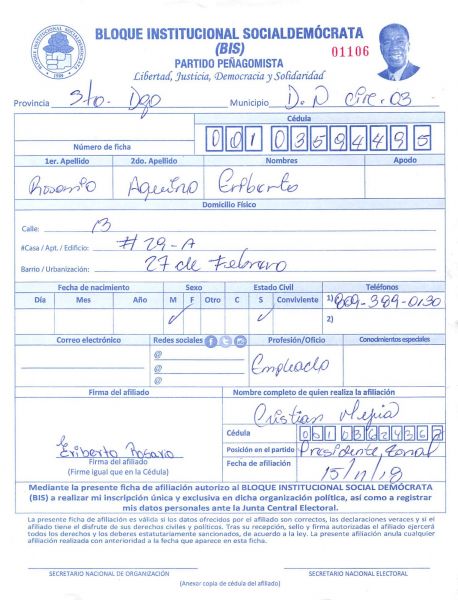 BLOQUE INSTITUCIONAL SOCIALDEMÓCRATA
(BIS)
01106
PARTIDO PEÑAGOMISTA
Libertad, Justicia, Democracia y Solidaridad
Provincia Sto. Dgo Municipio D.N Circ. 03
Cédula
Número de ficha 001 0359449 5
1er. Apellido 2do. Apellido Nombres Apodo
Rosario Aquino Eriberto
Domicilio Físico
Calle: 13
#Casa / Apt. / Edificio: #29-A
Barrio / Urbanización: 27 de Febrero
Fecha de nacimiento Sexo Estado Civil Teléfonos
Día Mes Año M F Otro C S Conviviente 1) 809-389-0130
2)
Correo electrónico Redes sociales Profesión/Oficio Conodmientos especiales
@
@ Empleado
@
Firma del afiliado Nombre completo de quien realiza la afiliación
Cristian Mejia
Cédula
Eriberto Rosario Posición en el partido Presidente Zonal
Firma del afiliado Fecha de afiliación 15/11/18
(Firme igual que en la Cédula)
Mediante la presente ficha de afiliación autorizo al BLOQUE INSTITUCIONAL SOCIAL DEMÓCRATA
(BIS) a realizar mi inscripción única y exclusiva en dicha organización política, así como a registrar
mis datos personales ante la Junta Central Electoral.
La presente ficha de afiliación es válida si los datos ofrecidos por el afiliado son correctos, las declaraciones veraces y si el
afiliado tiene el disfrute de sus derechos civiles y políticos. Tras su recepción, sello y firma autorizadas el afiliado ejercerá
todos los derechos y los deberes estatutariamente sancionados, de acuerdo a la ley. La presente afiliación anula cualquier
afiliación realizada con anterioridad a la fecha que aparece en esta ficha.
SECRETARIO NACIONAL DE ORGANIZACIÓN SECRETARIO NACIONAL ELECTORAL
(Anexar copia de cédula del afiliado)